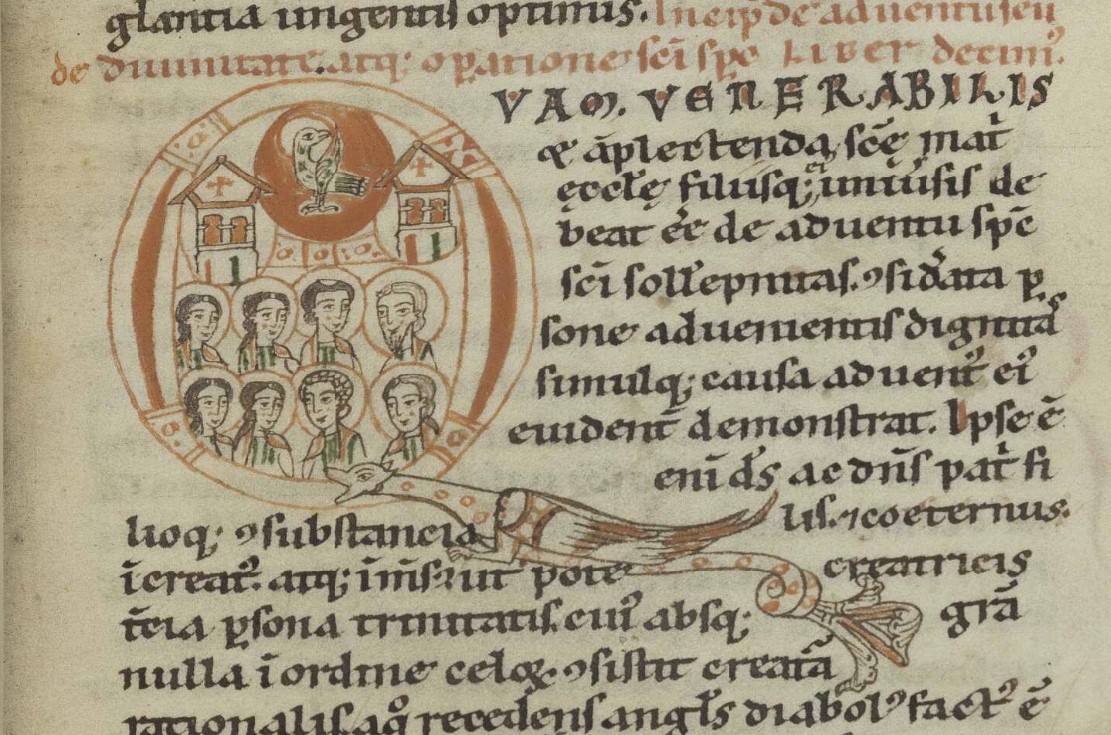 glantia ungentis optimis. Incip̄ de adventu seu
de divinitate atq; oꝑatione sc̄i sp̄c Liber decim᷒.
QVAM VENERABILIS
& āplectenda, sc̄ę mat̄
ęcclę filiisq; ei᷒ univ̄sis de
beat eē de adventu sp̄c
sc̄i sollepnitas. ꝯsid̄ata ꝑ
sone advenientis dignitas
simulq; causa advent᷒ ei᷒
evident̄ demonstrat. Ipse ē
eni d̄s ac dn̄s pat̄ fi
lioq; ꝯsubstancia lis. ⁊coeternus.
īcreat᷒. atq; īm̄s᷒. ut pote creatricis
t̄cia ꝑsona trinitatis. cui᷒ absq; grā
nulla ī ordine celoꝝ ꝯsistit creatā
rationalis. a q̊ recedens angl̄s diabol᷒ fact᷒ ē